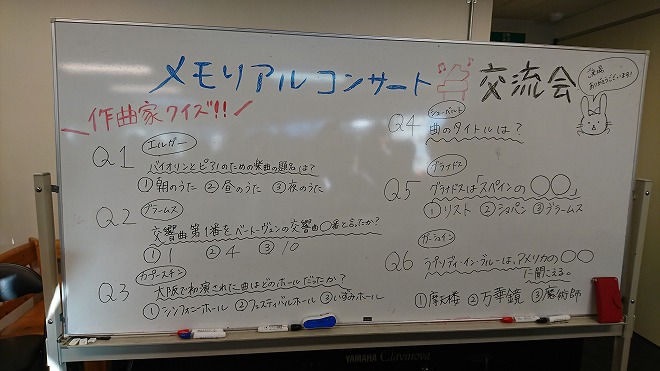 メモリアルコンサート 交流会
ご来場
ありがとうございます!
作曲家クイズ!!
Q1 エルガー
バイオリンとピアノのための楽曲の題名は?
①朝のうた ②昼のうた ③夜のうた
Q2 ブラームス
交響曲第1番をベートーヴェンの交響曲○番と言ったか?
①1 ②4 ③10
Q3 カプースチン
大阪で初演された曲はどのホールだったか?
①シンフォニーホール ②フェスティバルホール ③いずみホール
Q4 シューベルト
曲のタイトルは?
Q5 グラナドス
グラナドスは「スペインの○○」
①リスト ②ショパン ③ブラームス
Q6 ガーシュイン
ラプソディ・イン・ブルーは、アメリカの○○
に聞こえる。
①摩天楼 ②万華鏡 ③魔術師
YAMAHA Clavinova